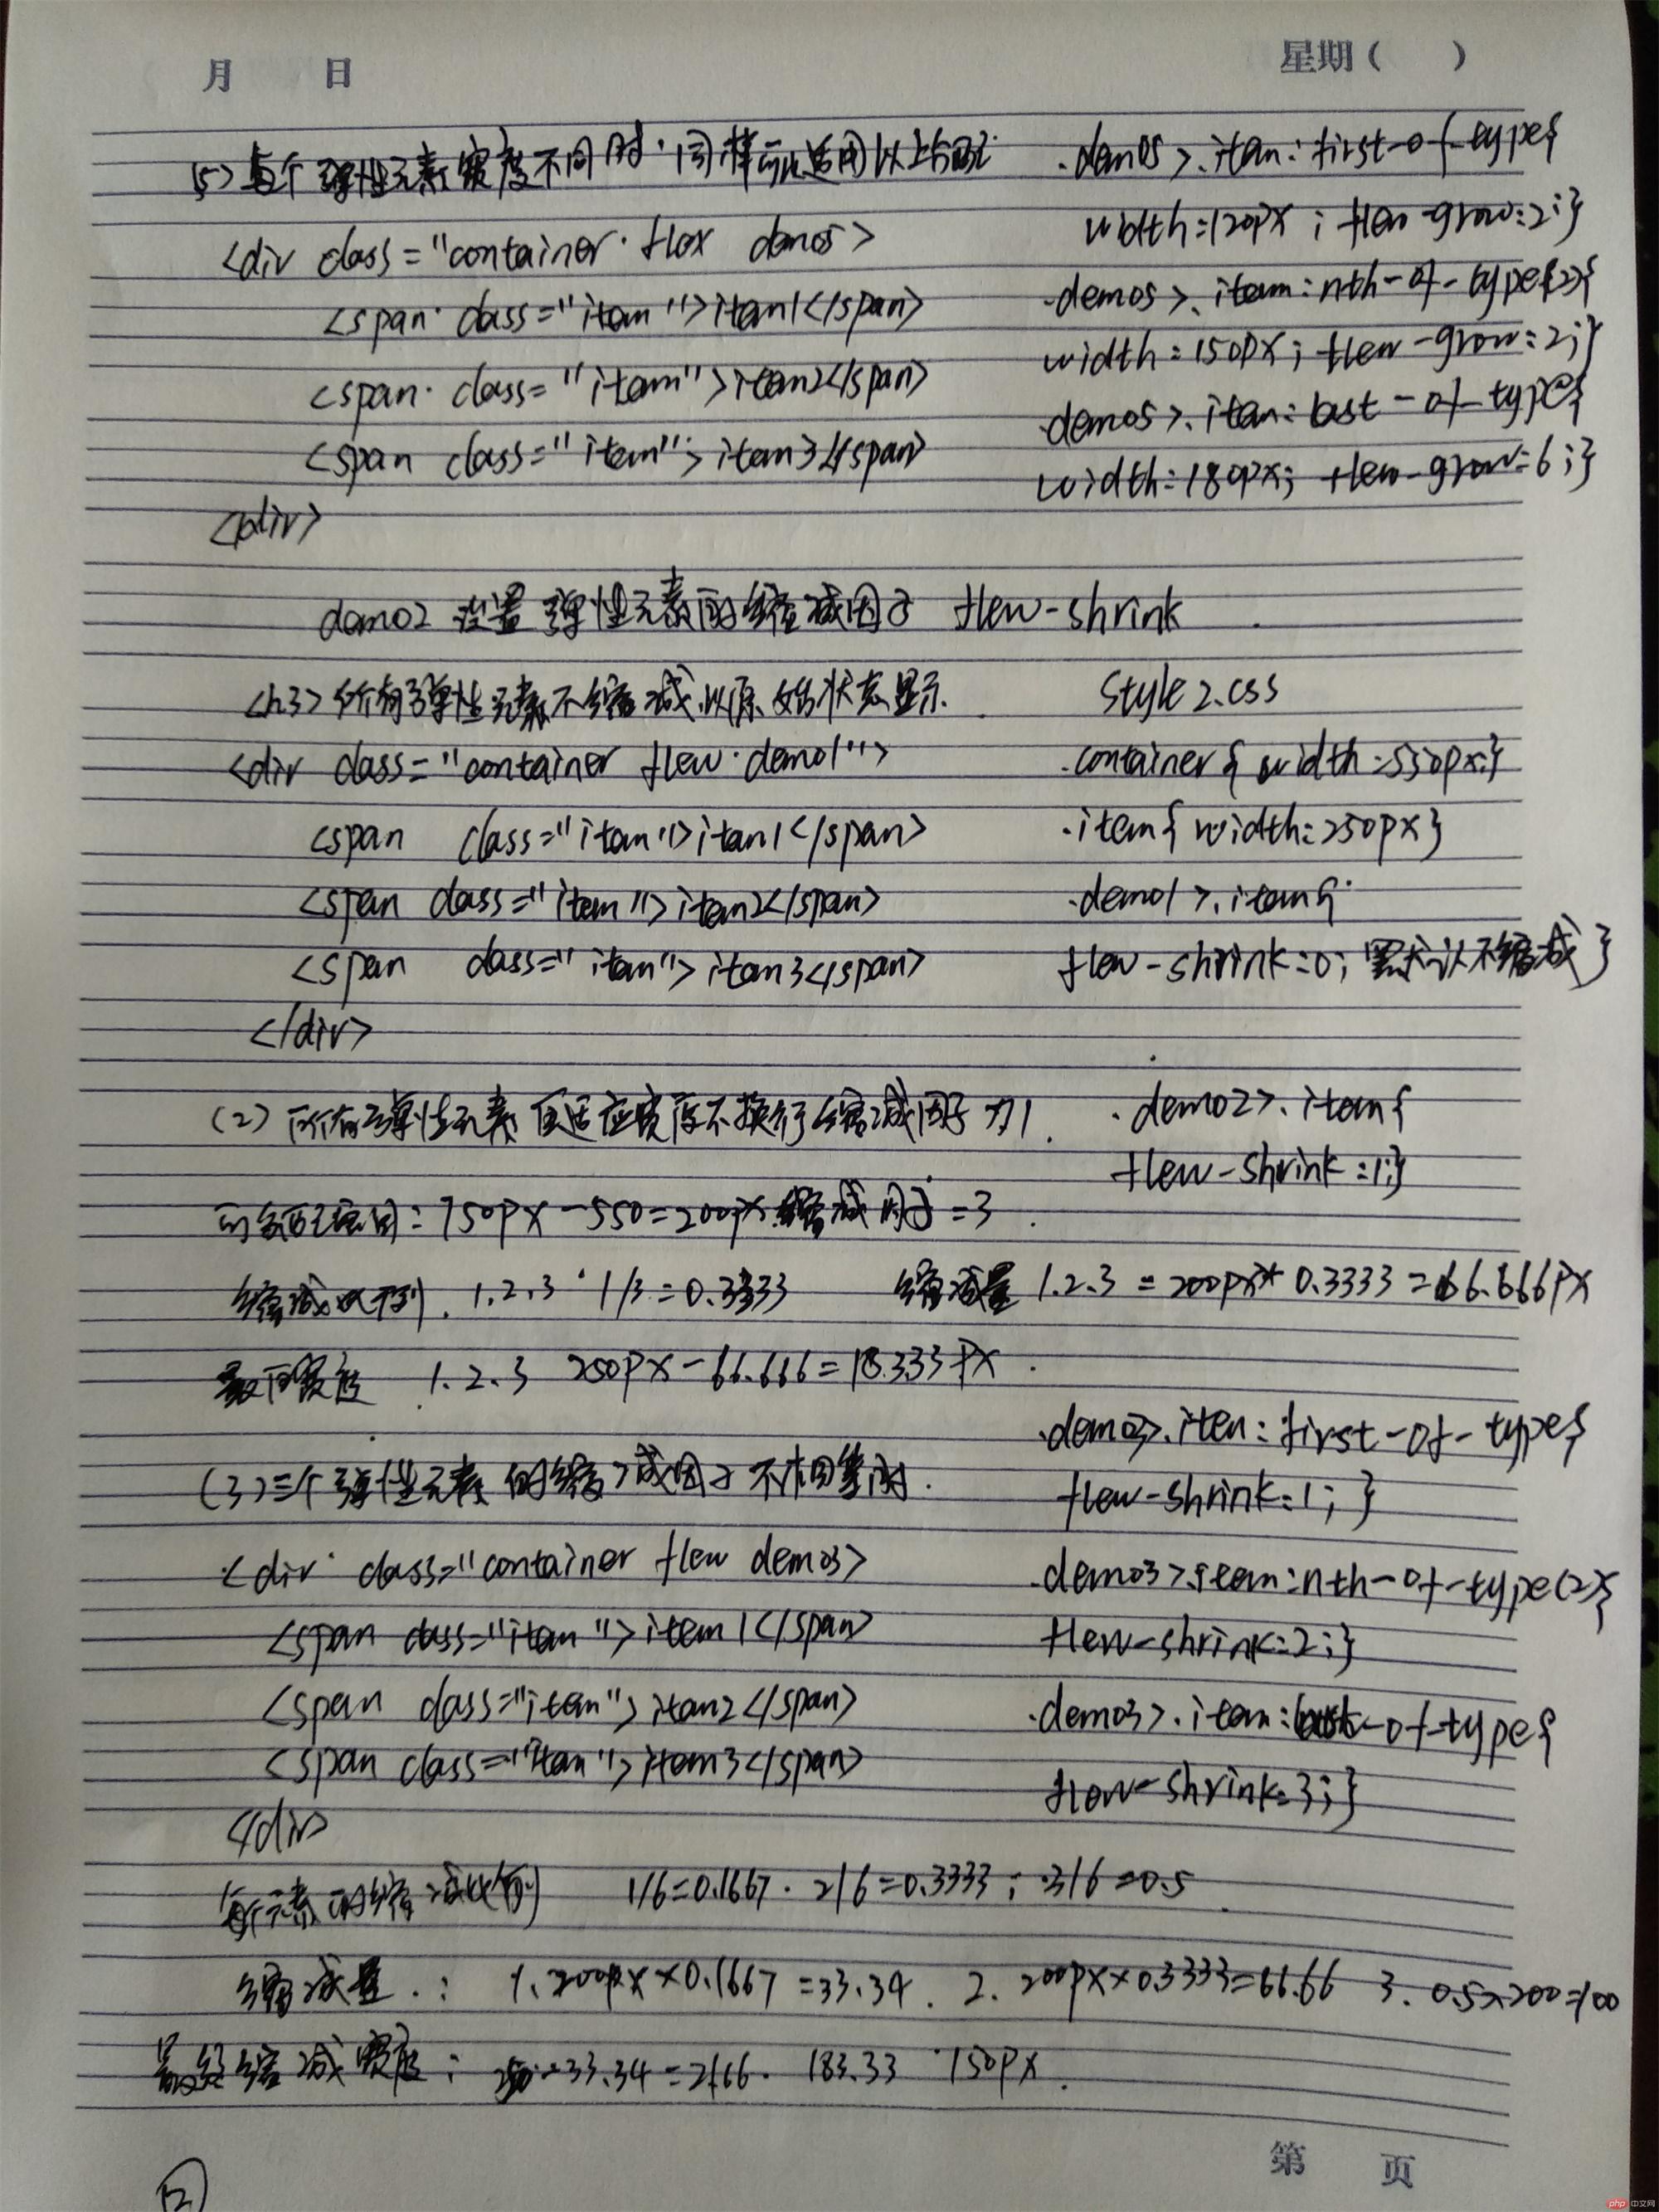 月 日 星期( )
(5)每个弹性元素宽度不同时·同样可以适用以上
<div class="container·flex demo5>
<span·class="item">item1</span>
<span·class="item">item2</span>
<span class="item">item3</span>
</div>
.demo5>.item:first-of-type{
width:120px; flew-grow:2;}
.demo5>.item:nth-of-type(2){
width:150px; flew-grow:2;}
.demo5>.item:last-of-type{
width:180px; flew-grow:6;}
demo2 设置弹性元素的缩减因子 flew-shrink
<h3>所有弹性元素不缩减,以原始状态显示.
<div class="container flew·demo1">
<span class="item">item1</span>
<span class="item">item2</span>
<span class="item">item3</span>
</div>
style2.css
.container{width:550px;}
.item{width:250px}
.demo1>.item{
flew-shrink:0;默认不缩减}
(2)所有弹性元素自适应宽度不换行缩减因子为1.
.demo2>.item{
flew-shrink:1;}
可分配空间:750px-550=200px.缩减因子=3.
缩减比例.1.2.3·1/3=0.3333 缩减量1.2.3=200px*0.3333=66.666px
最后宽度 1.2.3 250px-66.666=18.333px.
(3)三个弹性元素的缩减因子不相等时.
<div class="container flew demo3>
<span class="item">item1</span>
<span class="item">item2</span>
<span class="item">item3</span>
</div>
.demo3>.item:first-of-type{
flew-shrink:1;}
.demo3>.item:nth-of-type(2){
flew-shrink:2;}
.demo3>.item:last-of-type{
flew-shrink:3;}
每个元素的缩减比例 1/6=0.1667.2/6=0.3333;3/6=0.5
缩减量.: 1.200px×0.1667=33.34.2.200px×0.3333=66.66 3.0.5×200=100
最终缩减宽度:250-33.34=2166.183.33·150px.
第 页
2
php 中文网